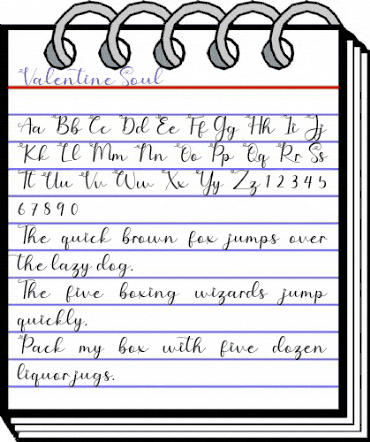 Valentine Soul
Aa Bb Cc Dd Ee Ff Gg Hh Ii Jj
Kk Ll Mm Nn Oo Pp Qq Rr Ss
Tt Uu Vv Ww Xx Yy Zz 1 2 3 4 5
6 7 8 9 0
The quick brown fox jumps over
the lazy dog.
The five boxing wizards jump
quickly.
Pack my box with five dozen
liquor jugs.